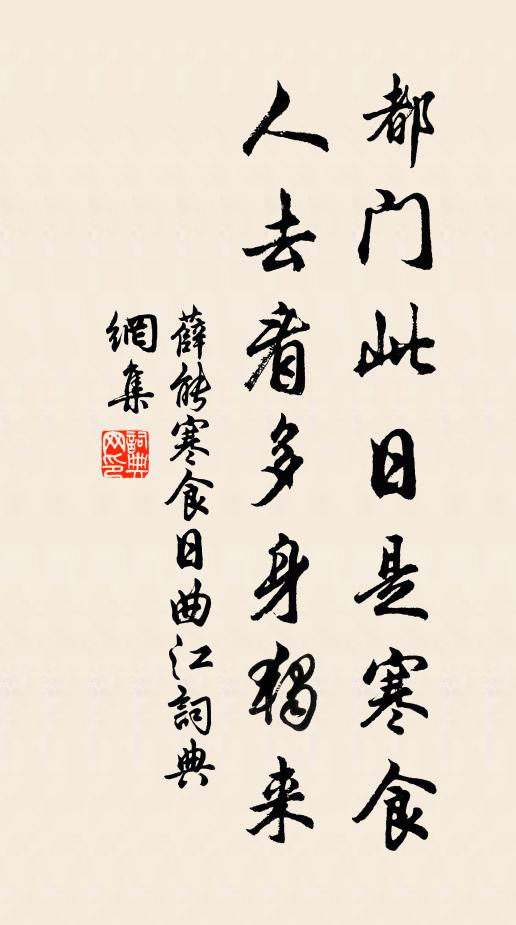 都门此日是寒食
人去看多身独来
薛能寒食日曲江詞典
網集
詞典网印